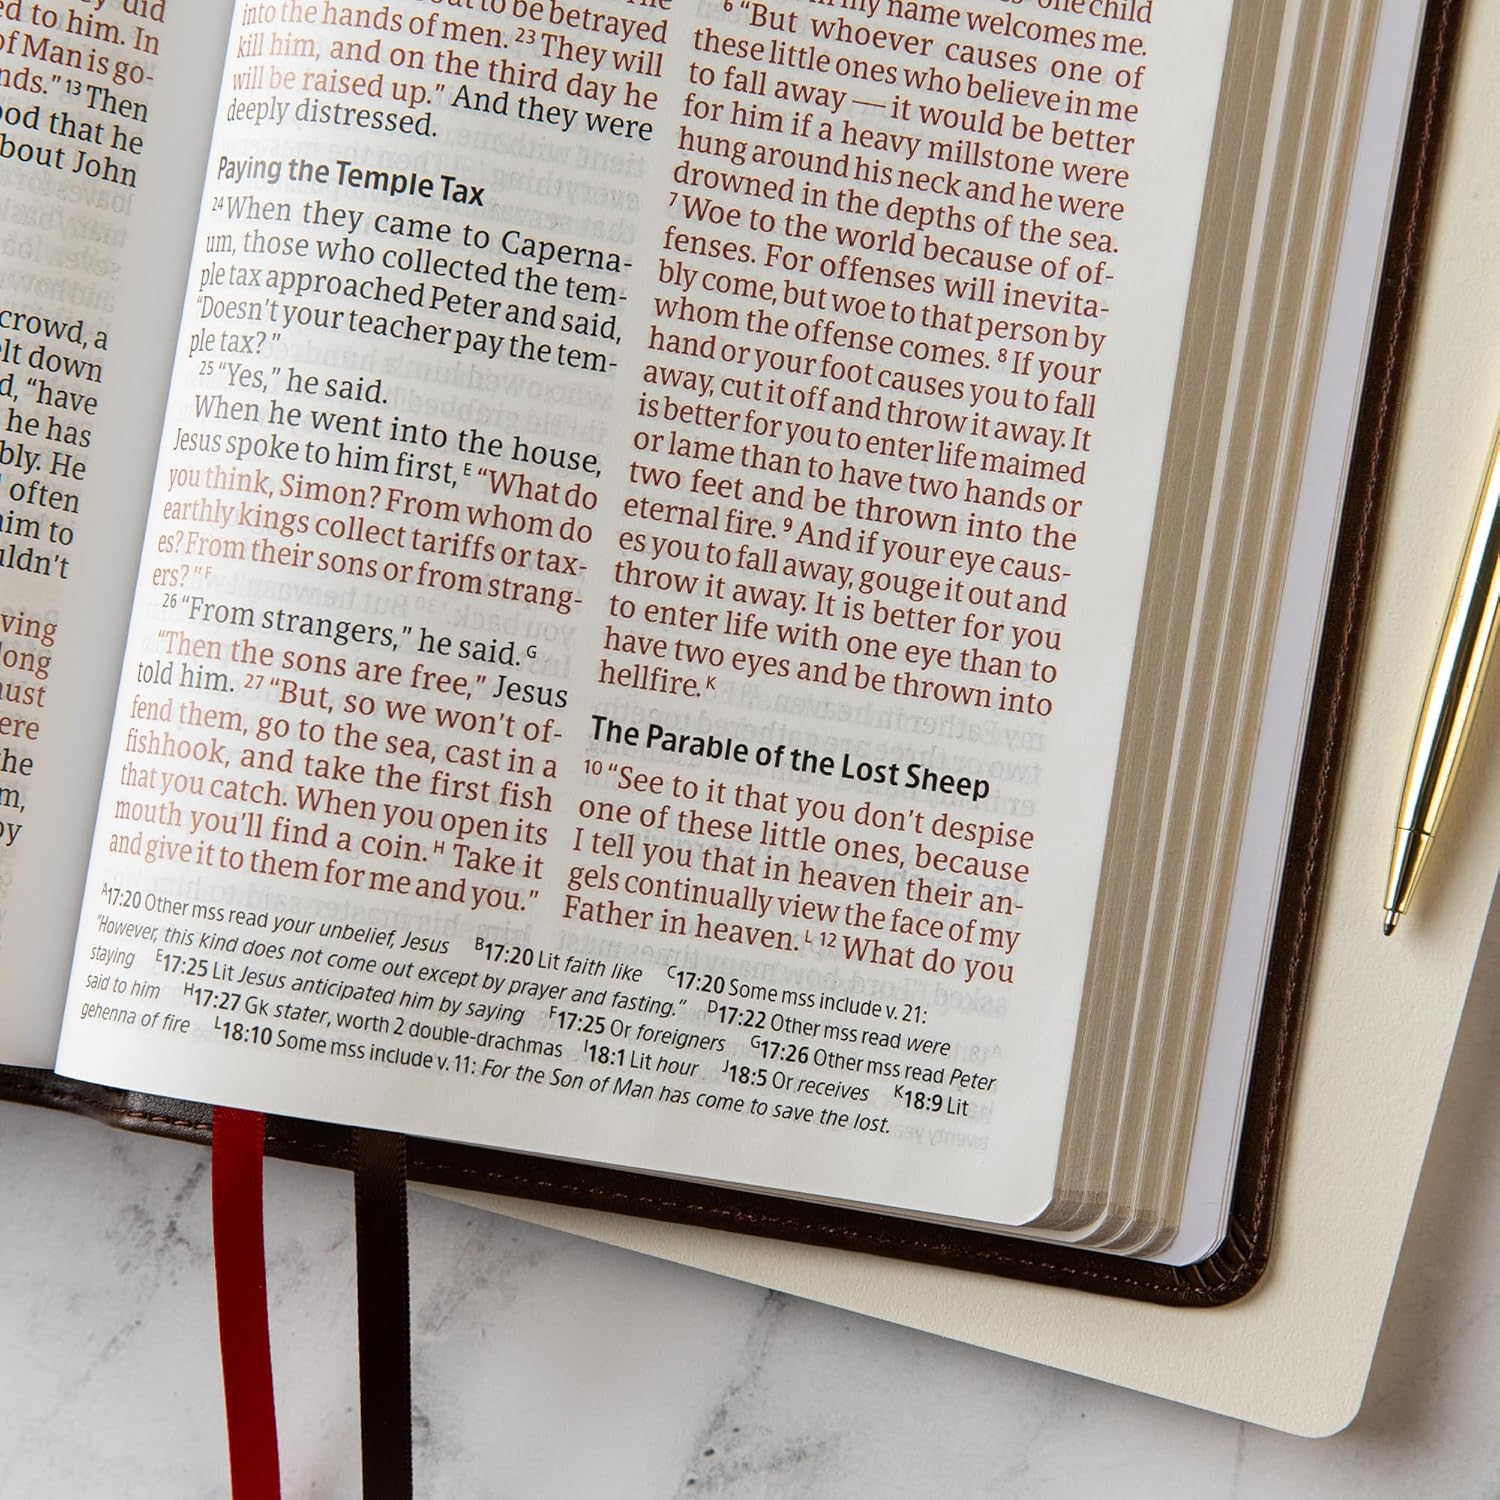 did
ed to him. In
of Man is go-
nds.” 13 Then
ood that he
bout John
crowd, a
elt down
d, “have
he has
bly. He
often
him to
uldn’t
ving
long
must
ere
he
m,
by
out to be betrayed
into the hands of men. 23 They will
kill him, and on the third day he
will be raised up.” And they were
deeply distressed.
Paying the Temple Tax
24 When they came to Caperna-
um, those who collected the tem-
ple tax approached Peter and said,
“Doesn’t your teacher pay the tem-
ple tax?”
25 “Yes,” he said.
When he went into the house,
Jesus spoke to him first, E “What do
you think, Simon? From whom do
earthly kings collect tariffs or tax-
es? From their sons or from strang-
ers?” F
26 “From strangers,” he said. G
“Then the sons are free,” Jesus
told him. 27 “But, so we won’t of-
fend them, go to the sea, cast in a
fishhook, and take the first fish
that you catch. When you open its
mouth you’ll find a coin. H Take it
and give it to them for me and you.”
one child
in my name welcomes me.
6 “But whoever causes one of
these little ones who believe in me
to fall away — it would be better
for him if a heavy millstone were
hung around his neck and he were
drowned in the depths of the sea.
7 Woe to the world because of of-
fenses. For offenses will inevita-
bly come, but woe to that person by
whom the offense comes. 8 If your
hand or your foot causes you to fall
away, cut it off and throw it away. It
is better for you to enter life maimed
or lame than to have two hands or
two feet and be thrown into the
eternal fire. 9 And if your eye caus-
es you to fall away, gouge it out and
throw it away. It is better for you
to enter life with one eye than to
have two eyes and be thrown into
hellfire. K
The Parable of the Lost Sheep
10 “See to it that you don’t despise
one of these little ones, because
I tell you that in heaven their an-
gels continually view the face of my
Father in heaven. L 12 What do you
A17:20 Other mss read your unbelief, Jesus B17:20 Lit faith like C17:20 Some mss include v. 21:
“However, this kind does not come out except by prayer and fasting.” D17:22 Other mss read were
staying E17:25 Lit Jesus anticipated him by saying F17:25 Or foreigners G17:26 Other mss read Peter
said to him H17:27 Gk stater, worth 2 double-drachmas I18:1 Lit hour J18:5 Or receives K18:9 Lit
gehenna of fire L18:10 Some mss include v. 11: For the Son of Man has come to save the lost.